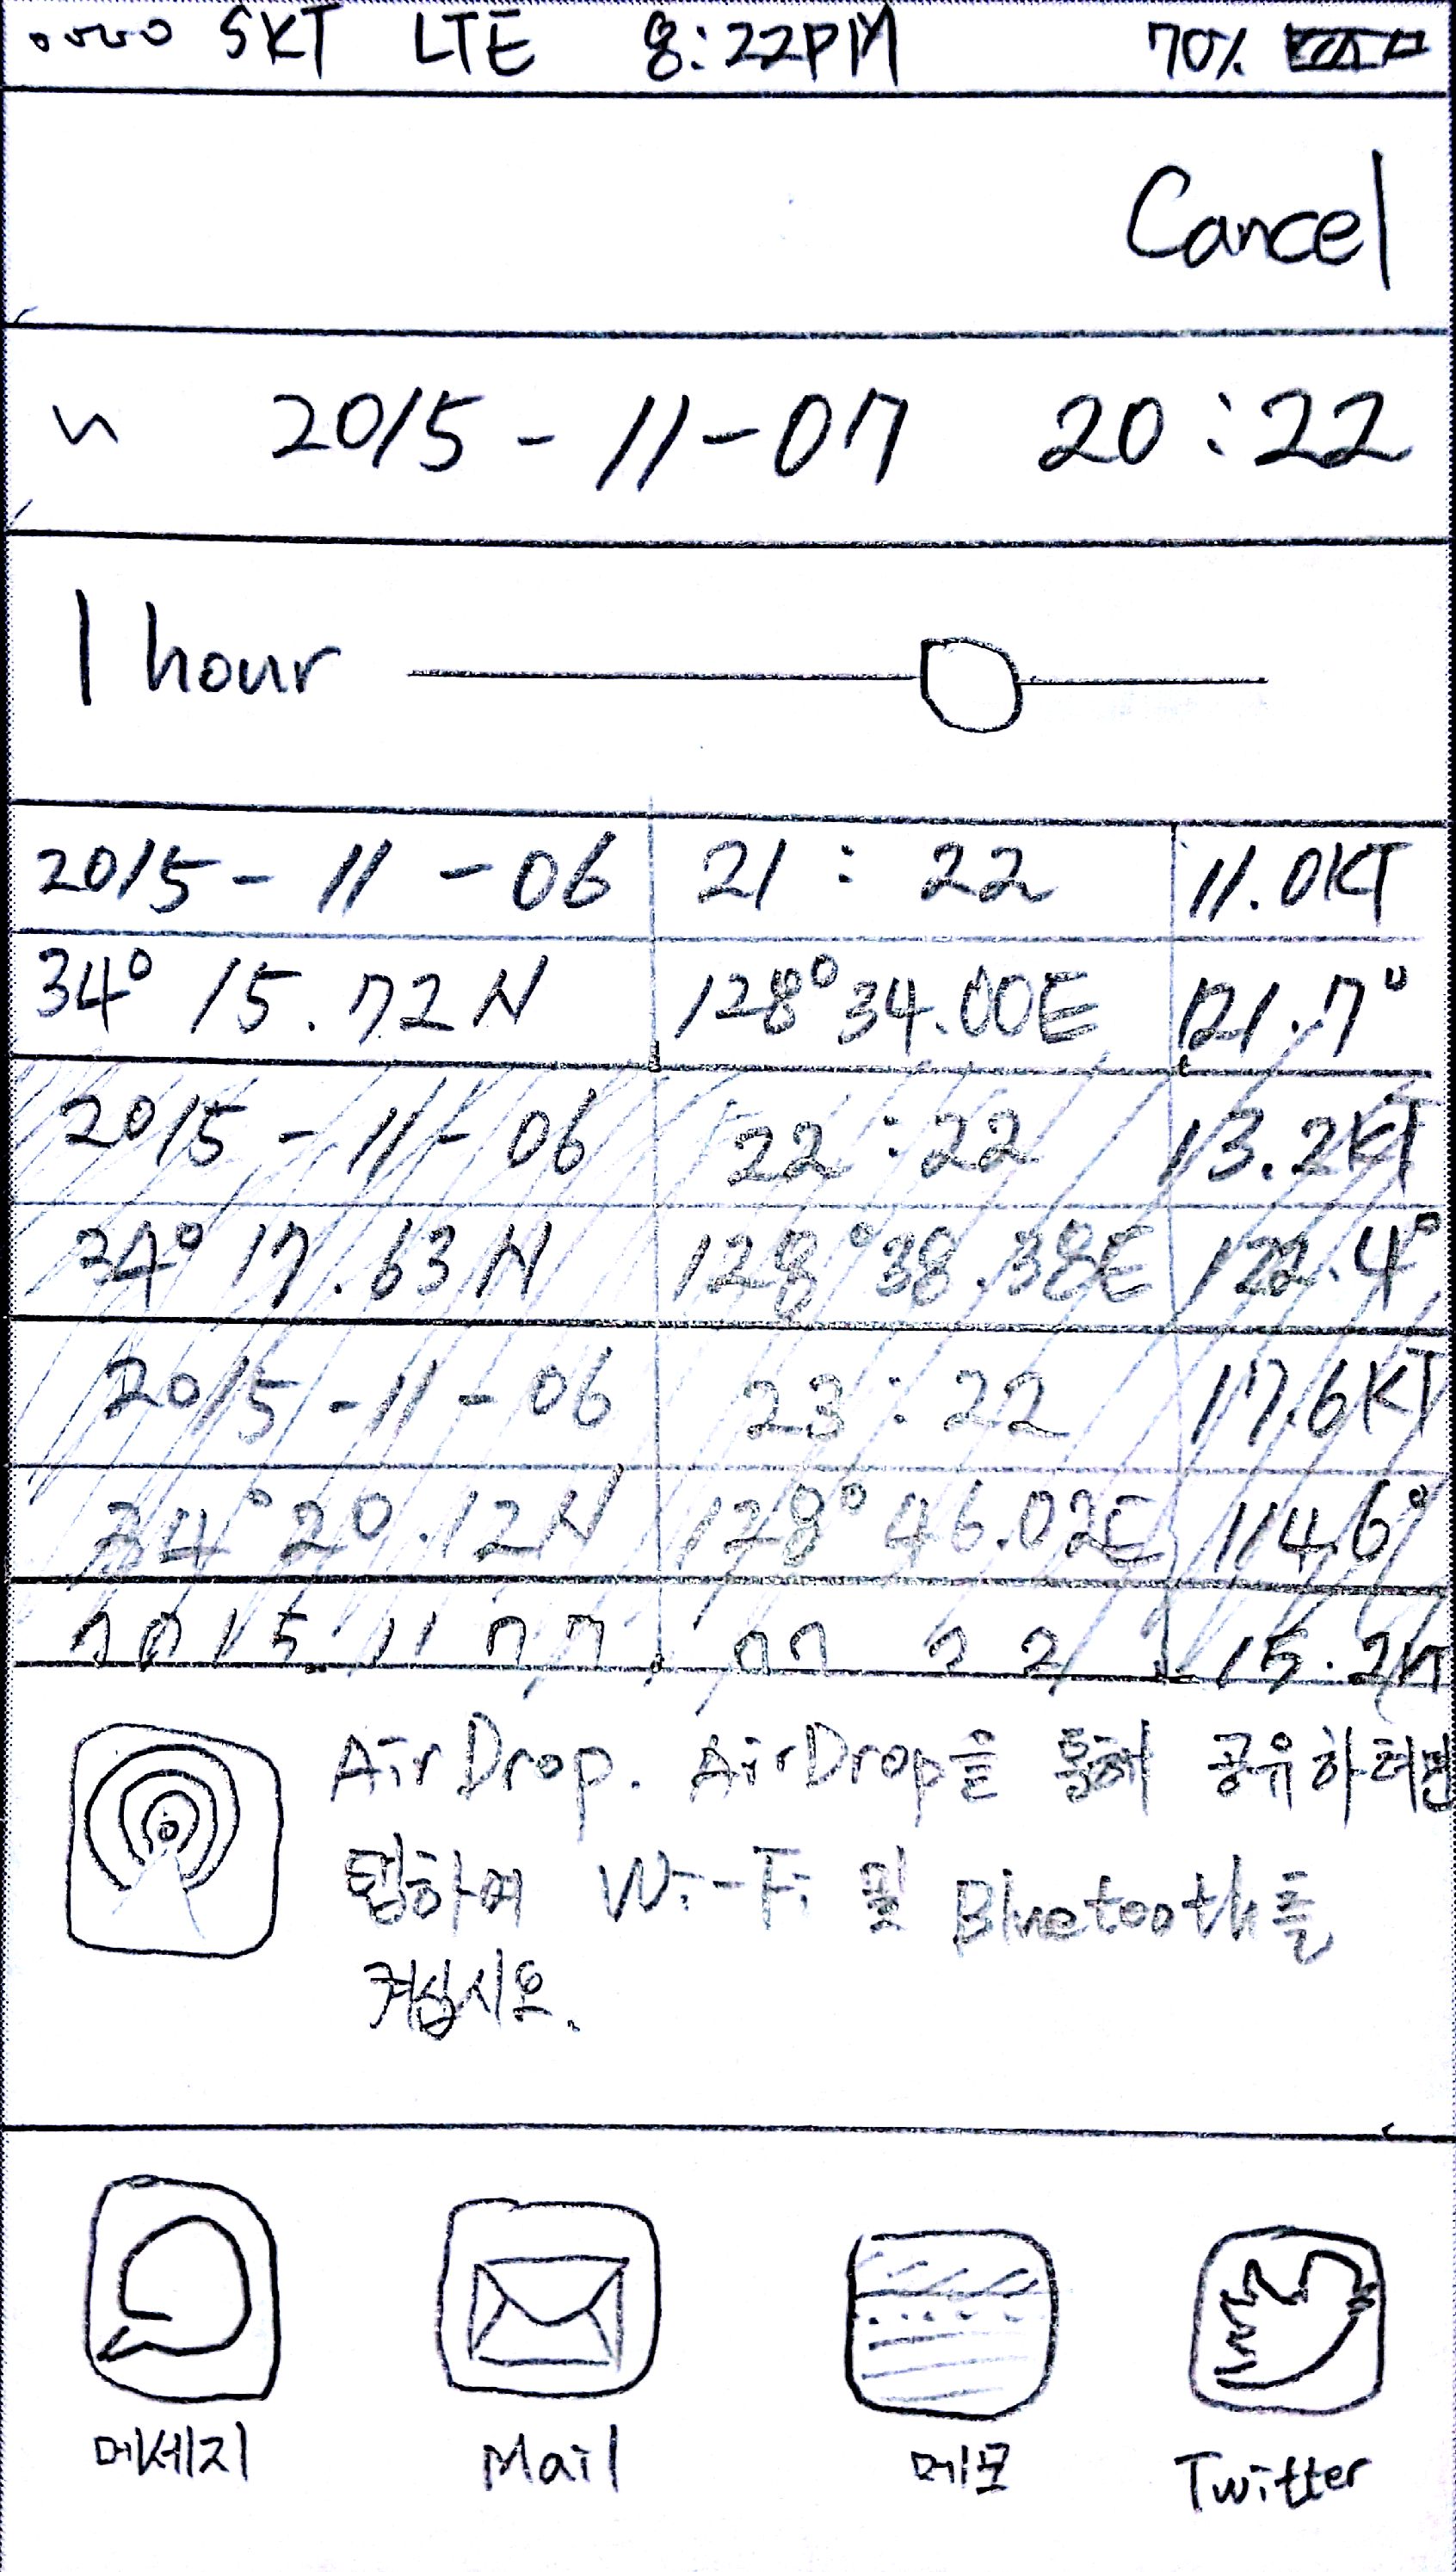 SKT LTE 8:22PM 70%
Cancel
~ 2015-11-07 20:22
1 hour
2015-11-06 21:22 11.0KT
34° 15.72N 128°34.00E 121.7°
2015-11-06 22:22 13.2KT
34° 17.63N 128°38.38E 122.4°
2015-11-06 23:22 17.6KT
34°20.12N 128°46.02E 114.6°
2015 11 22 15.2KT
AirDrop. AirDrop을 통해 공유하려면
탭하여 Wi-Fi 및 Bluetooth를
켜십시오.
메세지 Mail 메모 Twitter